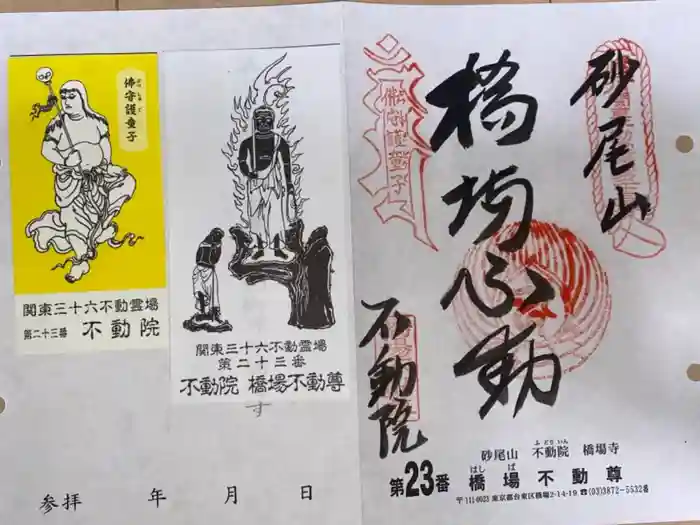 佛守護童子
ぶっしゅごどうじ
関東三十六不動霊場
第二十三番 不動院
関東三十六不動霊場
第二十三番
不動院 橋場不動尊
す
参拝 年 月 日
砂尾山
橋場不動
不動院
佛守護童子
砂尾山 不動院 橋場寺
ふどういん
第23番 橋場不動尊
はしば
〒111-0023 東京都台東区橋場2-14-19 ☎(03)3872-5532番